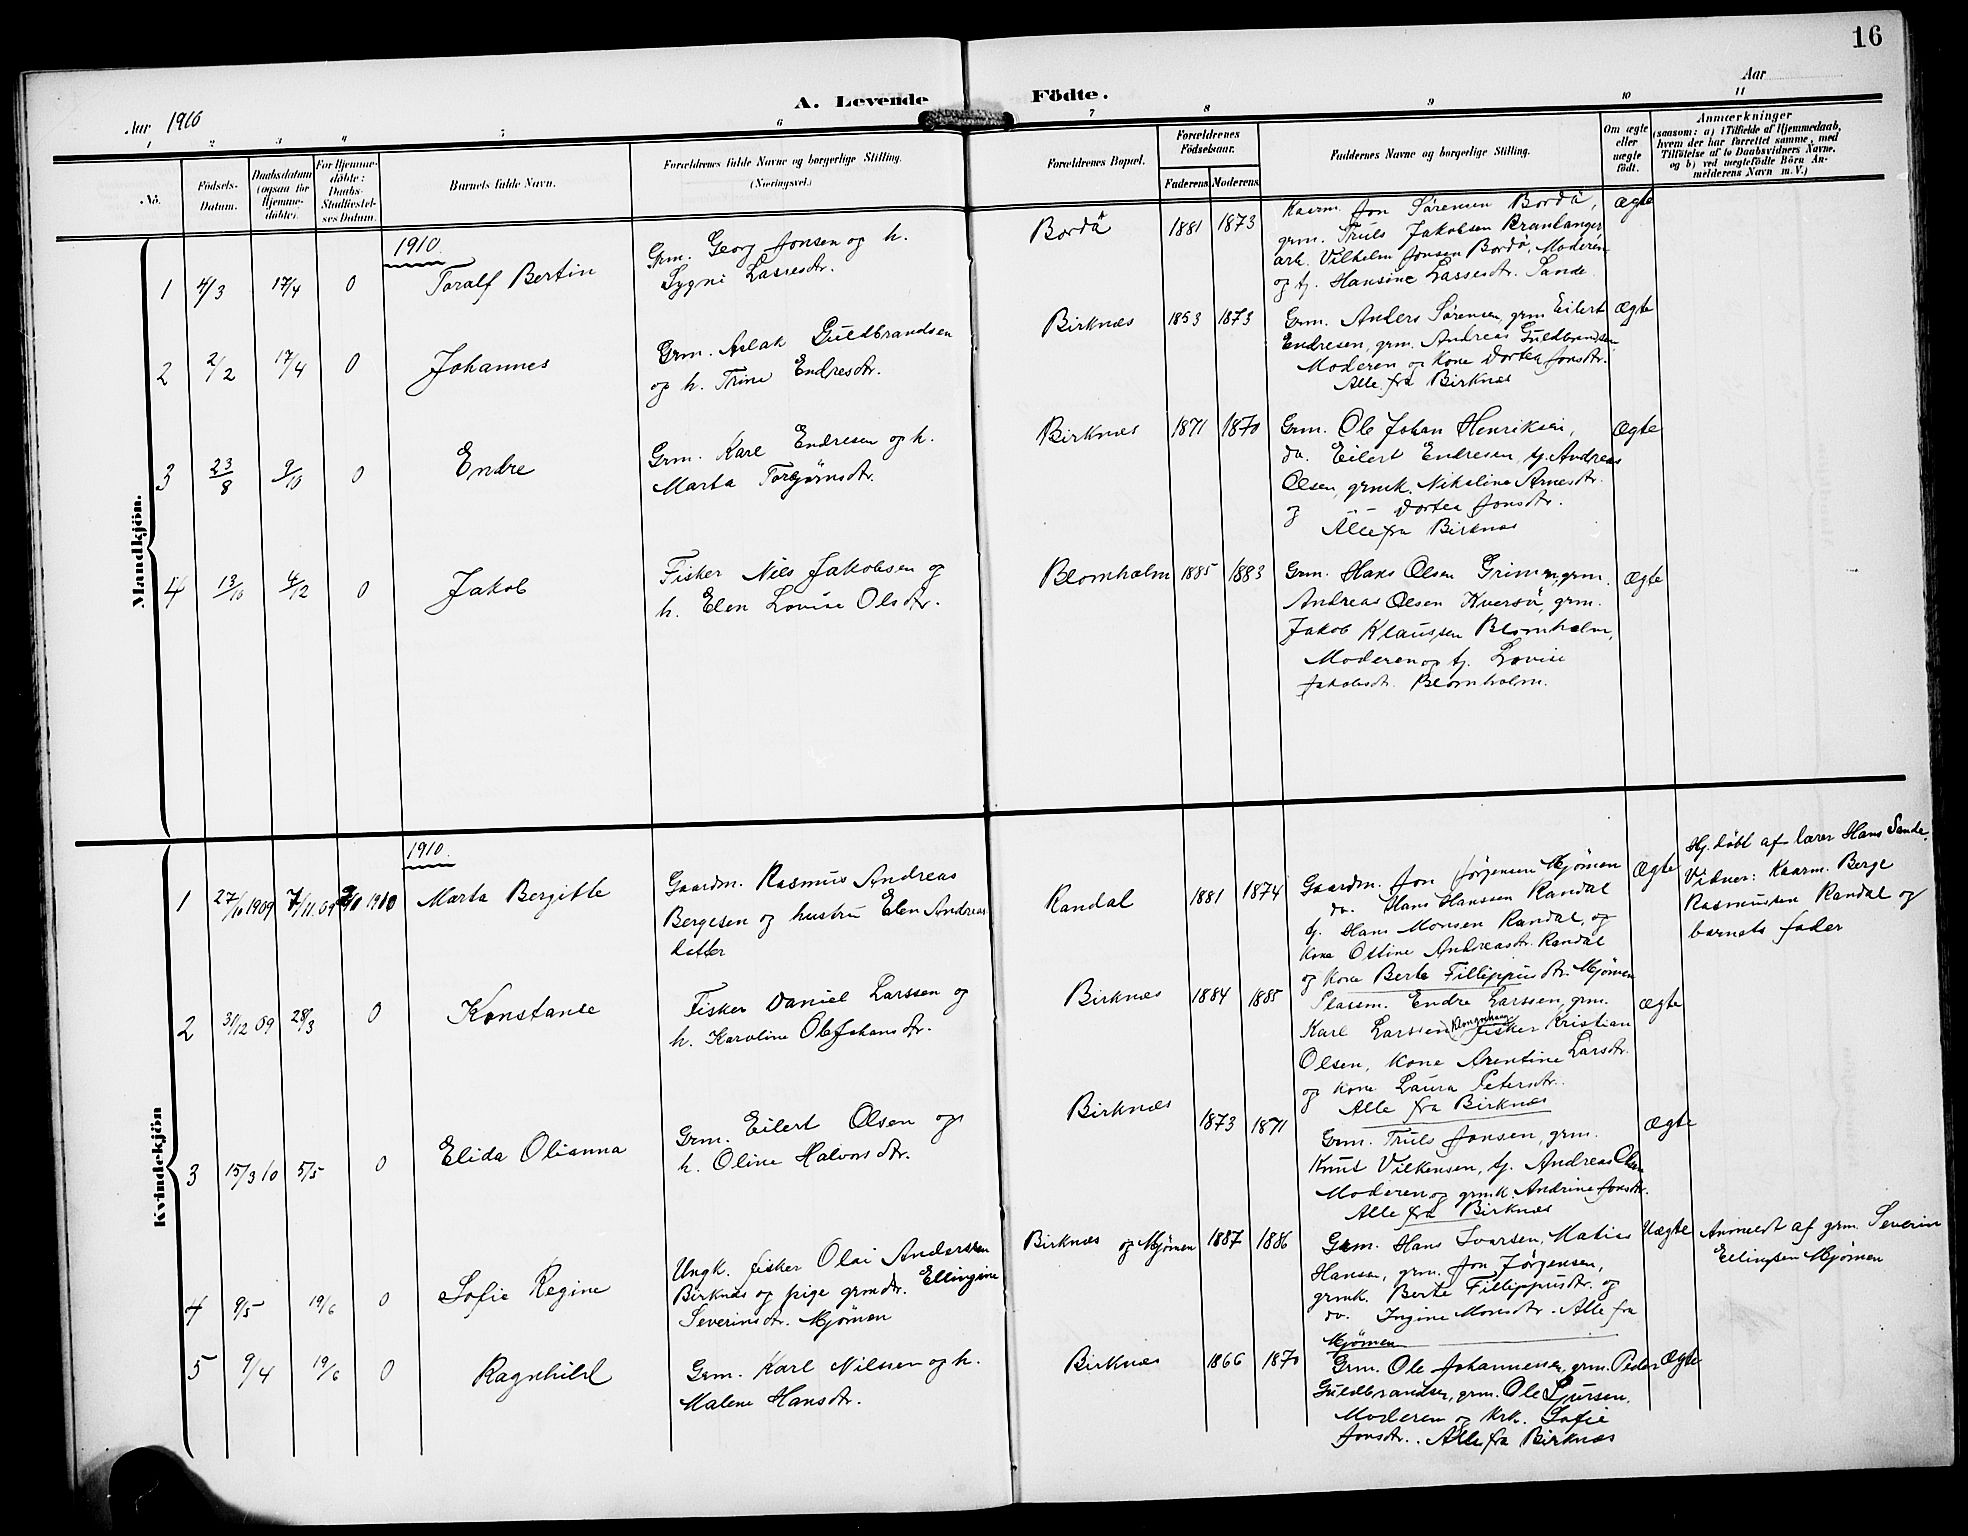 16
A. Levende Födte.
Aar 1910
Aar
1 2 3 4 5 6 7 8 9 10 11
No.
Födsels-
Datum.
Daabsdatum
(ogsaa for
Hjemme-
döbte).
For Hjemme-
döbte:
Daabs-
Stadfæstel-
ses Datum.
Barnets fulde Navn.
Forældrenes fulde Navne og borgerlige Stilling.
(Næringsvei.)
Forældrenes Bopæl.
Forældrenes
Födselsaar.
Faderens. Moderens.
Faddernes Navne og borgerlige Stilling.
Om ægte
eller
uægte
födt.
Anmærkninger
(saasom: a) i Tilfælde af Hjemmedaab,
hvem der har forrettet samme, med
Tilföielse af to Daabsvidners Navne,
og b) ved uægtefödte Börn An-
melderens Navn m. V.)
Mandkjön.
1910
1 4/3 17/4 0 Toralf Bertin
Grm. Georg Jonsen og h.
Sygni Lassesdtr.
Bordö 1881 1873
Kaarm. Jon Sörensen Bordö,
grm. Truls Jakobsen
ark. Vilhelm Jonsen Bordö, Moderen
og tj. Hansine Lassesdtr. Sande
ægte
2 2/2 17/4 0 Johannes
Grm. Aslak Guldbrandsen
og h. Trine Endresdtr.
Birknæs 1853 1873
Grm. Anders Sörensen, grm Eilert
Endresen, grm. Andreas Guldbrandsen
Moderen og Kone Dortea Jonsdtr.
Alle fra Birknæs
Ægte
3 23/8 9/10 0 Endre
Grm. Karl Endresen og h.
Marta Torbjörnsdtr.
Birknæs 1871 1870
Grm. Ole Johan Henriksen,
do. Eilert Endresen, tj. Andreas
Olsen, grmk. Nikoline Arnesdtr.
og — Dortea Jonsdtr.
Alle fra Birknæs
Ægte
4 13/10 4/12 0 Jakob
Fisker Nils Jakobsen og
h. Elen Lovise Olsdtr.
Blomholm 1885 1883
Grm. Hans Olsen Grimen, grm.
Andreas Olsen Kversö, grm.
Jakob Klaussen Blomholm,
Moderen og tj. Lovise
Jakobsdtr. Blomholm.
Ægte
Kvindekjön
1910.
1 27/10 1909 7/11 09 2/10 1910 Marta Bergitte
Gaardm. Rasmus Andreas
Bergesen og hustru Elen Andreas
datter
Randal 1881 1874
Gaardm. Jon Jörgensen Mjömen
do. Hans Hanssen Randal
tj. Hans Monsen Randal, og
Kone Ottine Andreasdtr. Randal
og Kone Berte Fillippusdtr. Mjömen
Ægte
Hj. döbt af lærer Hans Sande.
Vidner: Kaarm. Berge
Rasmussen Randal og
barnets fader
2 31/12 09 28/3 0 Konstanse
Fisker Daniel Larssen og
h. Karoline OleJohansdtr.
Birknæs 1884 1885
Plassm. Endre Larssen, grm.
Karl Larssen fisker Kristian
Olsen, Kone Arentine Larsdtr.
og Kone Laura Petersdtr.
Alle fra Birknæs
Ægte
3 15/3 10 5/5 0 Elida Olianna
Grm. Eilert Olsen og
h. Oline Halvorsdtr.
Birknæs 1873 1871
Grm. Truls Jonsen, grm.
Knut Vilkensen, tj. Andreas Olsen
Moderen og grmk. Andrine Jonsdtr.
Alle fra Birknæs
Ægte
4 9/5 19/6 0 Sofie Regine
Ungk. fisker Olai Anderssen
Birknæs og pige grmdtr. Ellingine
Severinsdtr. Mjömen
Birknæs og Mjömen 1887 1886
Grm. Hans Ivarsen, Matias
Hansen, grm. Jon Jörgensen,
grmk. Berte Fillippusdtr. og
do. Ingine Monsdtr. Alle fra
Mjömen
Uægte
Anmeldt af grm. Severin
Ellingsen Mjömen
5 9/4 19/6 0 Ragnhild
Grm. Karl Nilssen og h.
Malene Hansdtr.
Birknæs 1866 1870
Grm. Ole Johannessen, grm. Peder
Guldbrandsen, grm. Ole Sjursen,
Moderen og Krk. Sofie
Jonsdtr. Alle fra Birknæs
Ægte